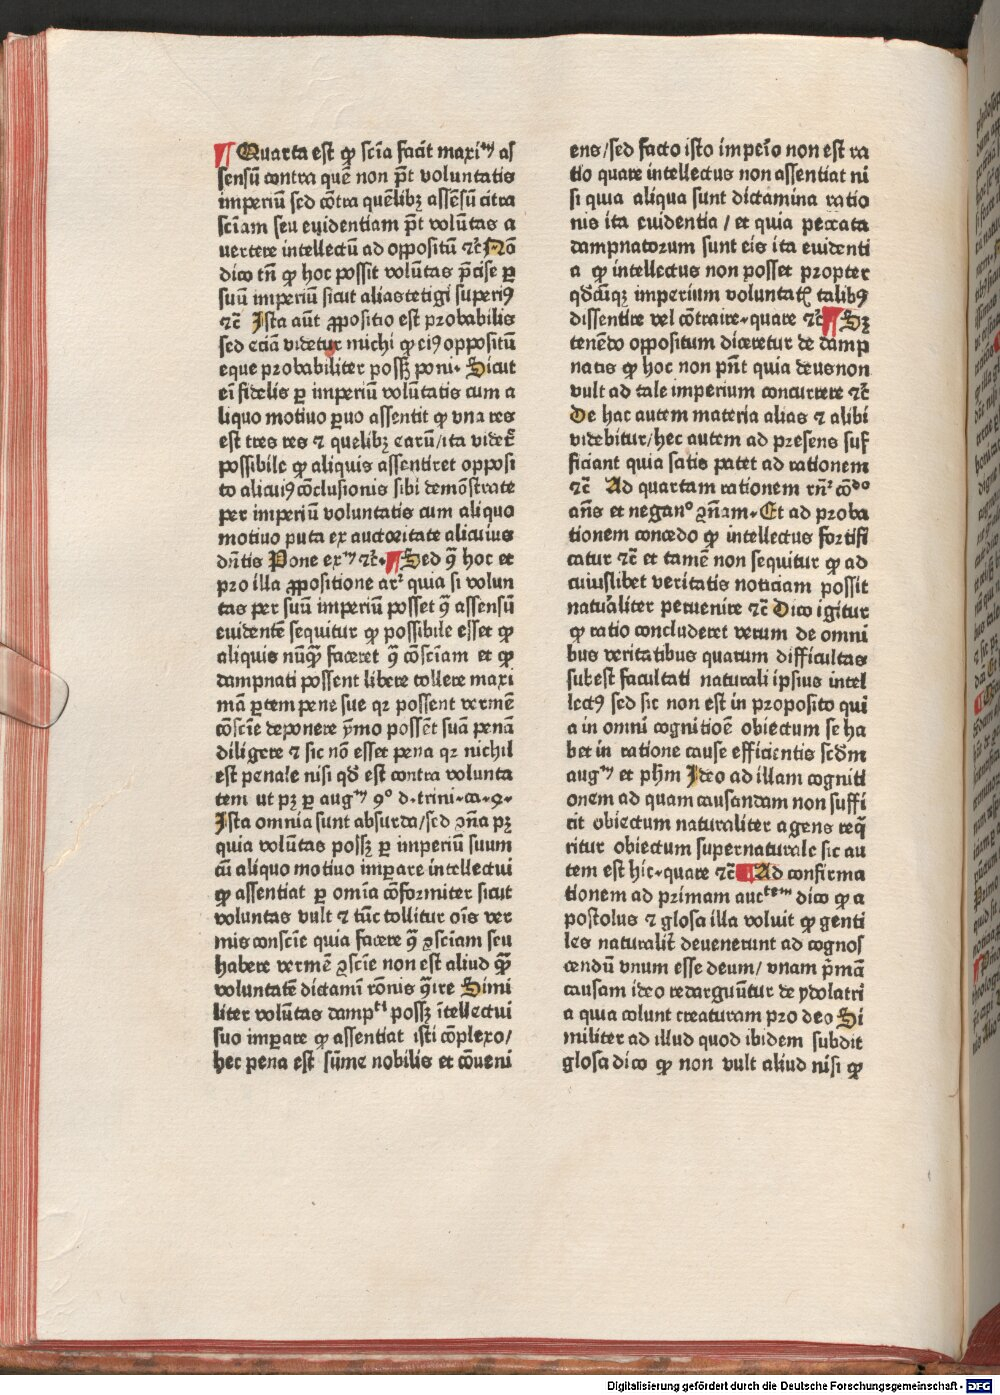 ¶ Quarta est ꝙ scīa facit maxiᵐ aſ
sensū contra quē non pōt voluntatis
imperiū sed cōtra quēlibꝫ assēsū citra
scīam seu euidentiam pōt volūtas a
uertere intellectū ad oppositū ⁊cͣ Nō
dico tn̄ ꝙ hoc possit volūtas p̄cise ꝑ
suū imperiū sicut alias tetigi superiꝰ
⁊cͣ Ista aūt ꝓpositio est probabilis
sed eciā videtur michi ꝙ eiꝰ oppositū
eque probabiliter possꝫ poni· Sicut
ei̅ fidelis ꝑ imperiū volūtatis cum a
liquo motiuo ꝑuo assentit ꝙ vna res
est tres res ⁊ quelibꝫ earū/ita videt᷑
possibile ꝙ aliquis assentiret opposi
to alicuiꝰ cōclusionis sibi demōstrate
per imperiū voluntatis cum aliquo
motiuo puta ex auctoritate alicuius
dn̄tis Pone exᵐ ⁊cͣ· ¶ Sed 9ͣ hoc et
pro illa ꝓpositione arᷣ quia si volun
tas per suū imperiū posset 9ͣ assensū
euidentē sequitur ꝙ possibile esset ꝙ
aliquis nūꝙͣ faceret 9ͣ cōsciam et ꝙ
dampnati possent libere tollere maxi
mā ꝑtem pene sue qꝛ possent vermē
cōscīe deponere ymo possēt suā penā
diligere ⁊ sic nō esset pena qꝛ nichil
est penale nisi qd̄ est contra volunta
tem ut pꝫ ꝑ augᵐ 9° d·trini·ca·9·
Ista omnia sunt absurda/sed 9n̄a pꝫ
quia volūtas possꝫ ꝑ imperiū suum
cū aliquo motiuo imꝑare intellectui
ꝙ assentiat ꝑ omīa cōformiter sicut
voluntas vult ⁊ tūc tollitur oīs ver
mis conscīe quia facere 9ͣ 9sciam seu
habere vermē 9scīe non est aliud ꝙͣ
voluntatē dictamī rōnis 9ͣire Simi
liter volūtas dampᵗⁱ possꝫ ītellectui
suo imꝑare ꝙ assentiat isti cōplexo/
hec pena est sūme nobilis et cōueni
ens/sed facto isto imperio non est ra
tio quare intellectus non assentiat ni
si quia aliqua sunt dictamina ratio
nis ita euidentia/ et quia peccata
dampnatorum sunt eis ita euidenti
a ꝙ intellectus non posset propter
qd̄cūqꝫ imperium voluntatꝭ talibꝰ
dissentire vel cōtraire·quare ⁊cͣ ¶ Sꝫ
tenēdo oppositum diceretur de damp
natis ꝙ hoc non pn̄t quia deus non
vult ad tale imperium concurrere ⁊cͣ
De hac autem materia alias ⁊ alibi
videbitur/hec autem ad presens suf
ficiant quia satis patet ad rationem
⁊cͣ Ad quartam rationem rn̄ᷣ cōᵈᵒ
an̄s et negan° 9n̄am· Et ad proba
tionem concedo ꝙ intellectus fortifi
catur ⁊cͣ et tamē non sequitur ꝙ ad
cuiuslibet veritatis noticiam possit
natural̓iter peruenire ⁊cͣ Dico igitur
ꝙ ratio concluderet verum de omni
bus veritatibus quarum difficultas
subest facultati naturali ipsius intel
lectꝰ sed sic non est in proposito qui
a in omni cognitiōe obiectum se ha
bet in ratione cause efficientis scd̄m
augᵐ et ph̄m Ideo ad illam cogniti
onem ad quam causandam non suffi
cit obiectum naturaliter agens req̄
ritur obiectum supernaturale sic au
tem est hic·quare ⁊cͣ ¶ Ad confirma
tionem ad primam aucᵗᵉᵐ dico ꝙ a
postolus ⁊ glosa illa voluit ꝙ genti
les naturalit᷑ deuenerunt ad cognos
cendū vnum esse deum/ vnam p̄mam
causam ideo redarguūtur de ydolatri
a quia colunt creaturam pro deo Si
militer ad illud quod ibidem subdit
glosa dico ꝙ non vult aliud nisi ꝙ
Digitalisierung gefördert durch die Deutsche Forschungsgemeinschaft - DFG